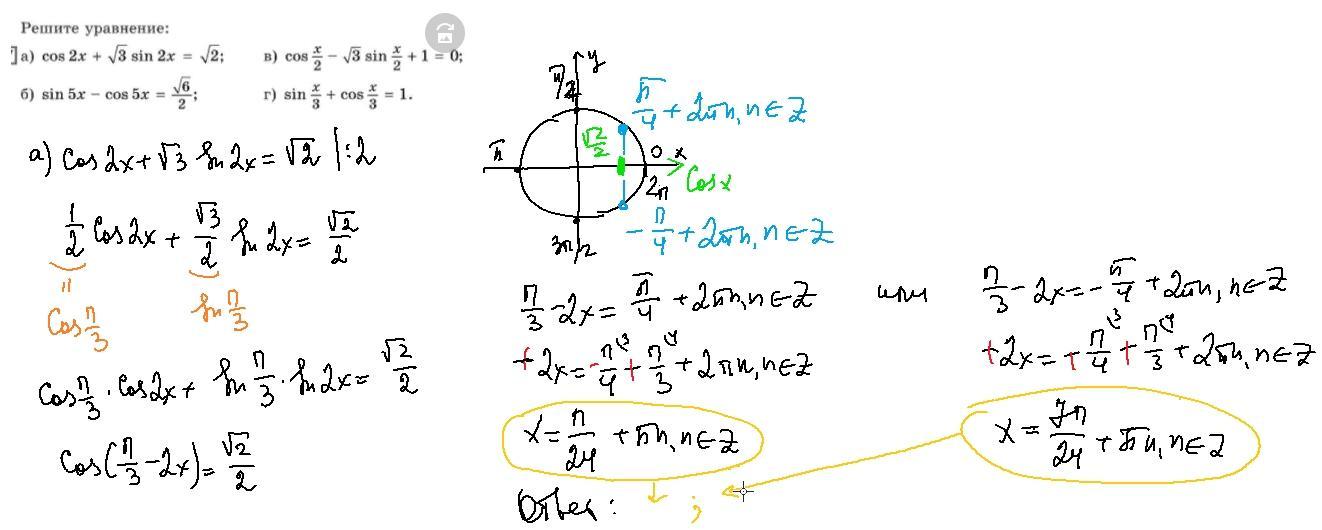 Решите уравнение:
а) cos 2x + √3 sin 2x = √2; в) cos x/2 − √3 sin x/2 + 1 = 0;
б) sin 5x − cos 5x = √6/2; г) sin x/3 + cos x/3 = 1.
а) cos 2x + √3 sin 2x = √2 |:2
1/2 cos 2x + √3/2 sin 2x = √2/2
॥
cos π/3 sin π/3
cos π/3 · cos 2x + sin π/3 · sin 2x = √2/2
cos(π/3 − 2x) = √2/2
y
π/2
π/4 + 2πn, n ∈ Z
√2/2
π 0 x
2π cos x
−π/4 + 2πn, n ∈ Z
3π/2
π/3 − 2x = π/4 + 2πn, n ∈ Z или π/3 − 2x = −π/4 + 2πn, n ∈ Z
+2x = −π/4\3 + π/3\4 + 2πn, n ∈ Z +2x = +π/4\3 + π/3\4 + 2πn, n ∈ Z
x = π/24 + πn, n ∈ Z x = 7π/24 + πn, n ∈ Z
Ответ: ;